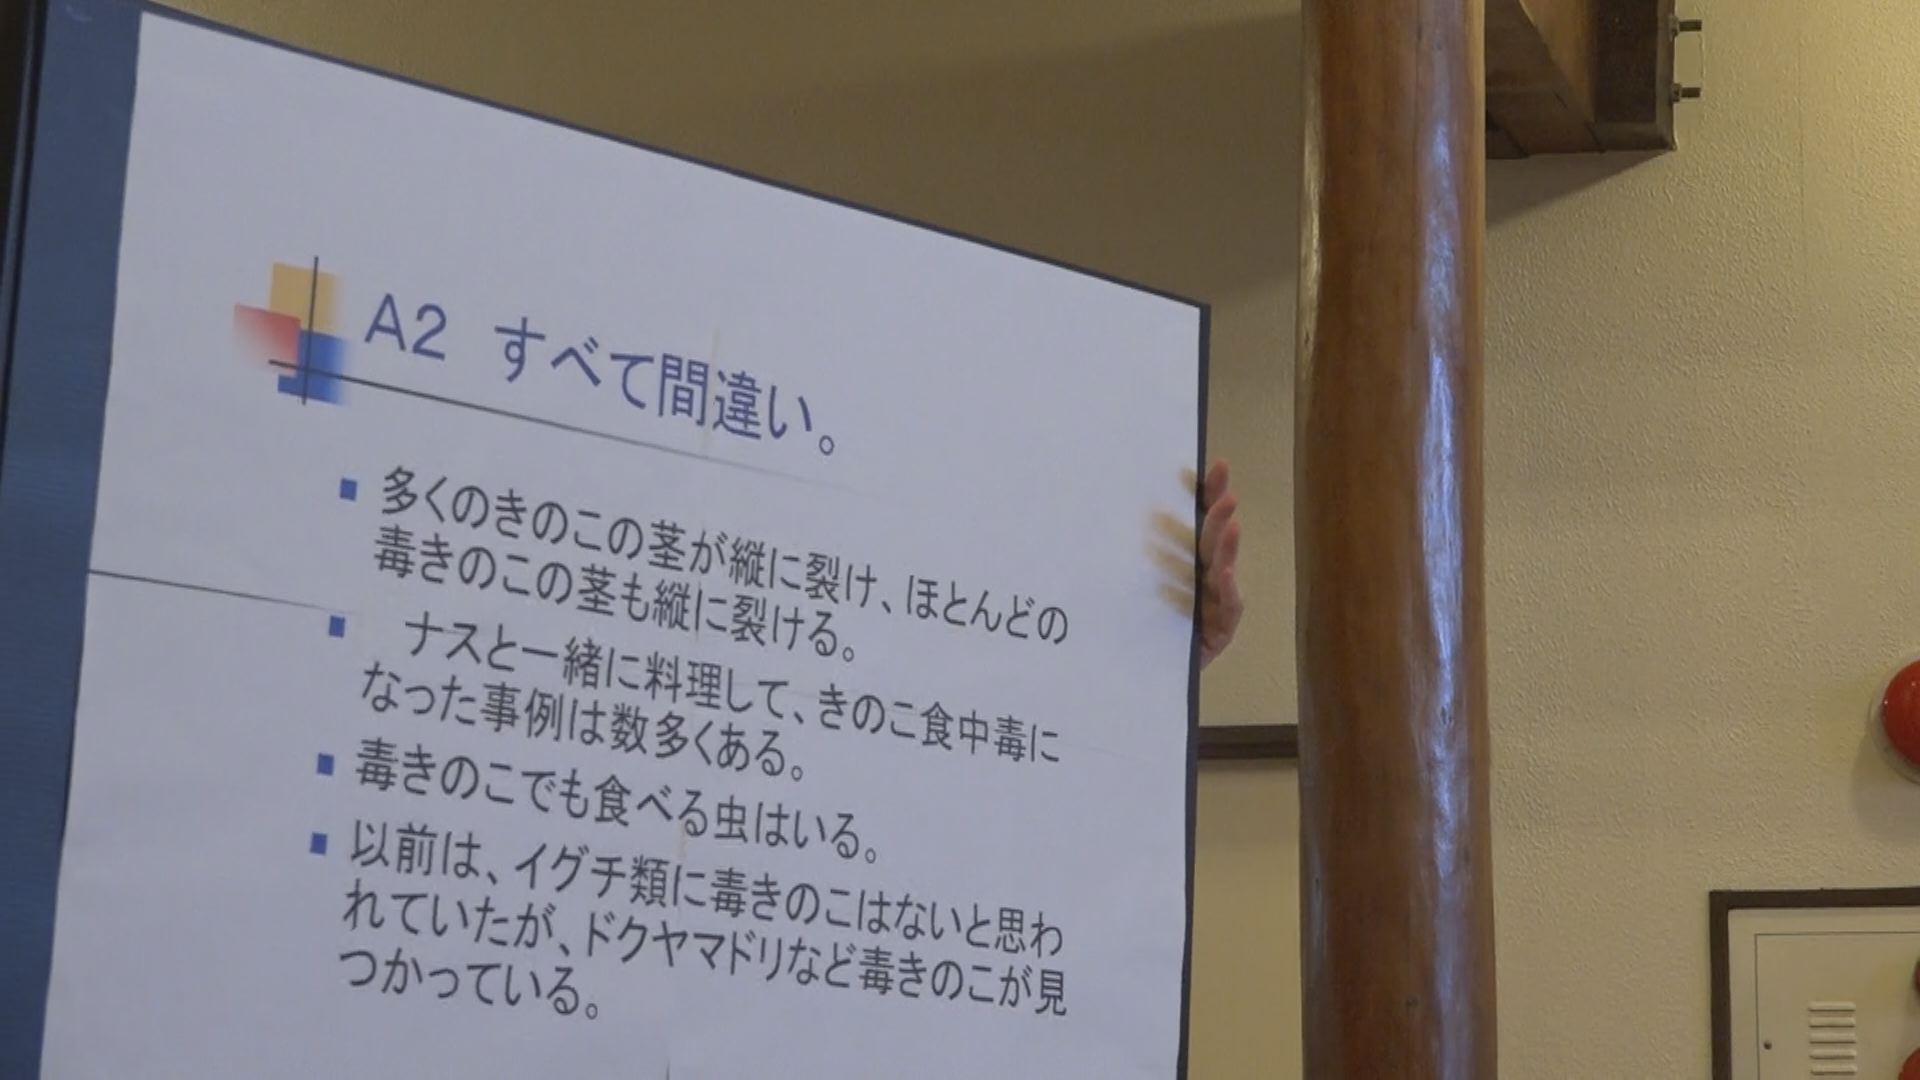 A2 すべて間違い。
多くのきのこの茎が縦に裂け、ほとんどの
毒きのこの茎も縦に裂ける。
ナスと一緒に料理して、きのこ食中毒に
なった事例は数多くある。
毒きのこでも食べる虫はいる。
以前は、イグチ類に毒きのこはないと思わ
れていたが、ドクヤマドリなど毒きのこが見
つかっている。